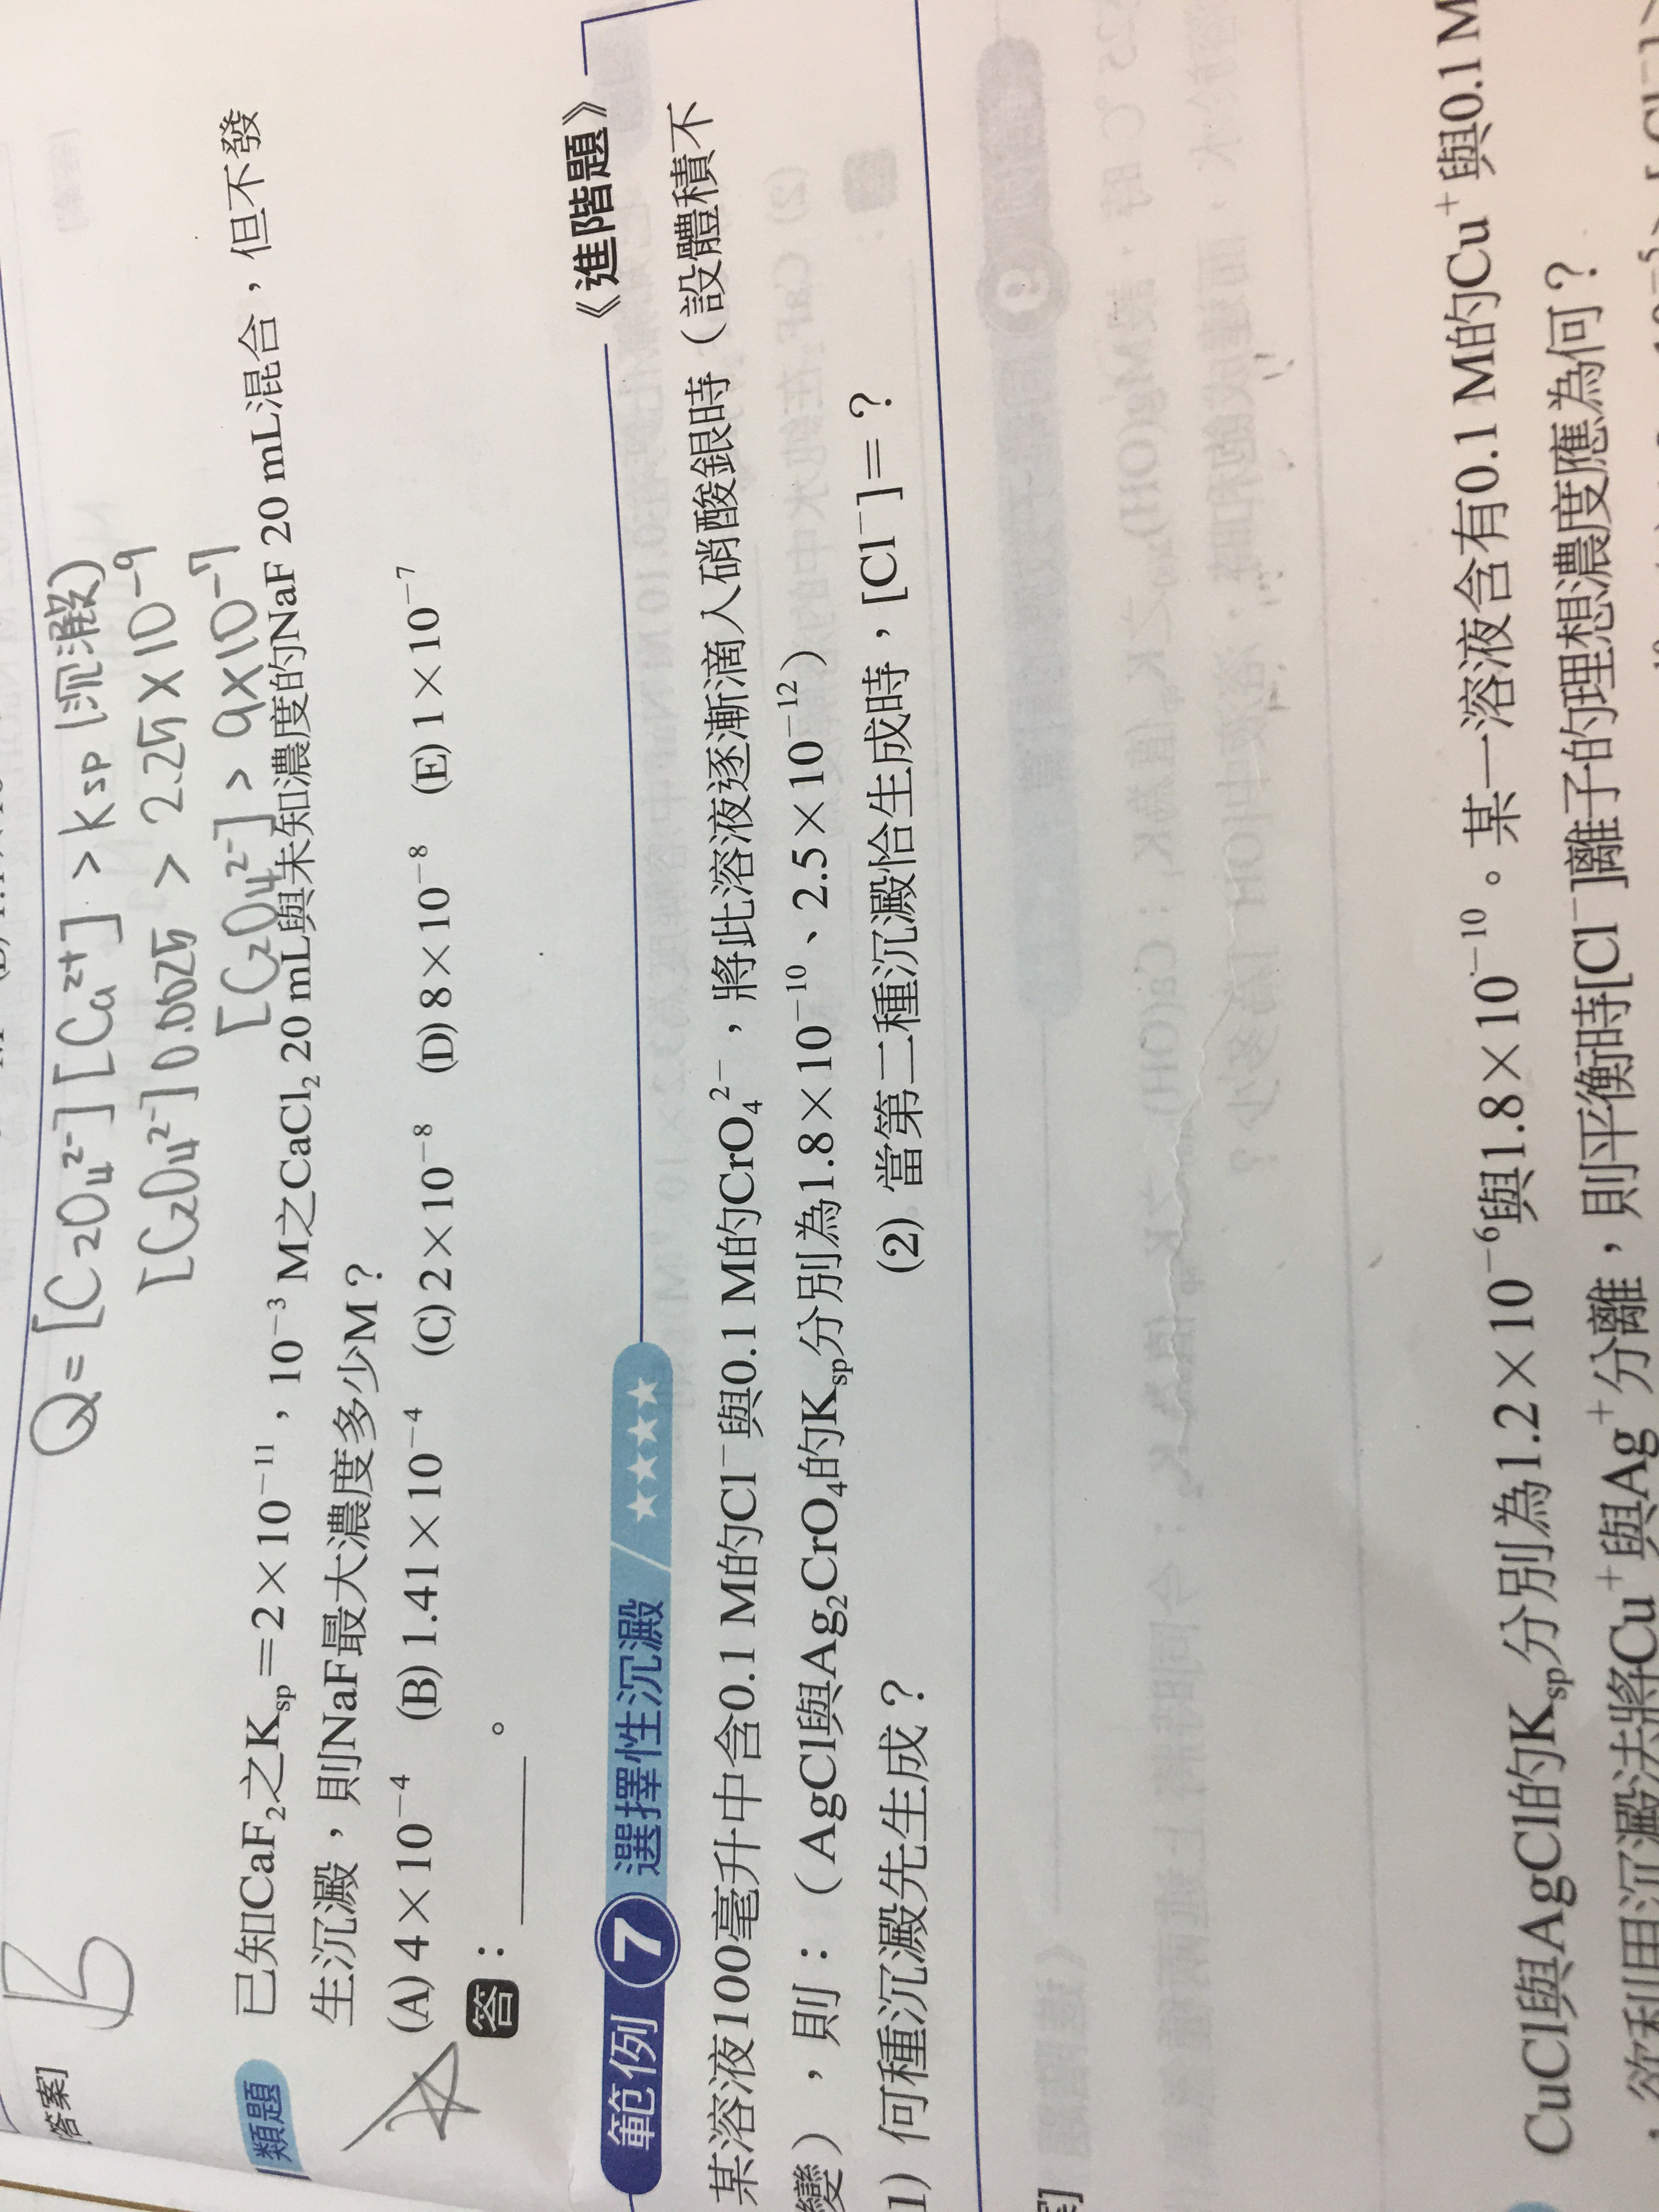 Q=[C₂O₄²⁻][Ca²⁺]>ksp(沉澱)
[C₂O₄²⁻]0.0025>2.25×10⁻⁹
[C₂O₄²⁻]>9×10⁻⁷
答案]
B
類題 已知CaF₂之Kₛₚ=2×10⁻¹¹,10⁻³ M之CaCl₂ 20 mL與未知濃度的NaF 20 mL混合,但不發
生沉澱,則NaF最大濃度多少M?
(A) 4×10⁻⁴ (B) 1.41×10⁻⁴ (C) 2×10⁻⁸ (D) 8×10⁻⁸ (E) 1×10⁻⁷
答:______。
範例 7 選擇性沉澱 / ★★★★ 《進階題》
某溶液100毫升中含0.1 M的Cl⁻與0.1 M的CrO₄²⁻,將此溶液逐漸滴入硝酸銀時(設體積不
變),則:(AgCl與Ag₂CrO₄的Kₛₚ分別為1.8×10⁻¹⁰、2.5×10⁻¹²)
1) 何種沉澱先生成? (2) 當第二種沉澱恰生成時,[Cl⁻]=?
CuCl與AgCl的Kₛₚ分別為1.2×10⁻⁶與1.8×10⁻¹⁰。某一溶液含有0.1 M的Cu⁺與0.1 M
,欲利用沉澱法將Cu⁺與Ag⁺分離,則平衡時[Cl⁻]離子的理想濃度應為何?